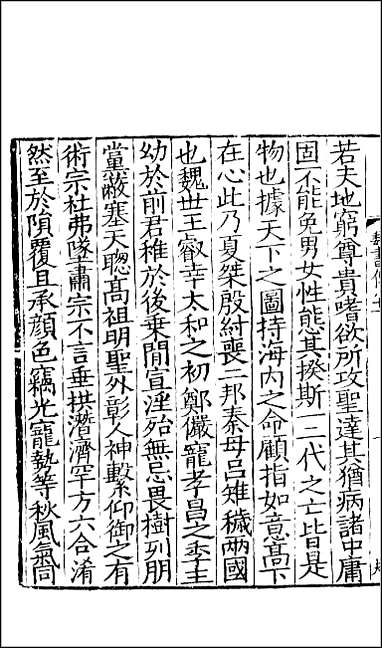 若夫地窮尊貴嗜欲所攻聖達其猶病諸中庸
固不能免男女性態其揆斯一二代之亡皆是
物也據天下之圖持海内之命顧指如意高下
在心此乃夏桀殷紂喪二邦秦母呂雉穢兩國
也魏世王叡幸太和之初鄭儼寵孝昌之季主
幼於前君稚於後乗間宣淫殆無忌畏樹列朋
黨蔽塞天聰髙祖明聖外彰人神繫仰御之有
術宗社弗墜肅宗不言垂拱潛濟罕方六合淆
然至於隕覆且承顔色竊光寵勢等秋風氣同